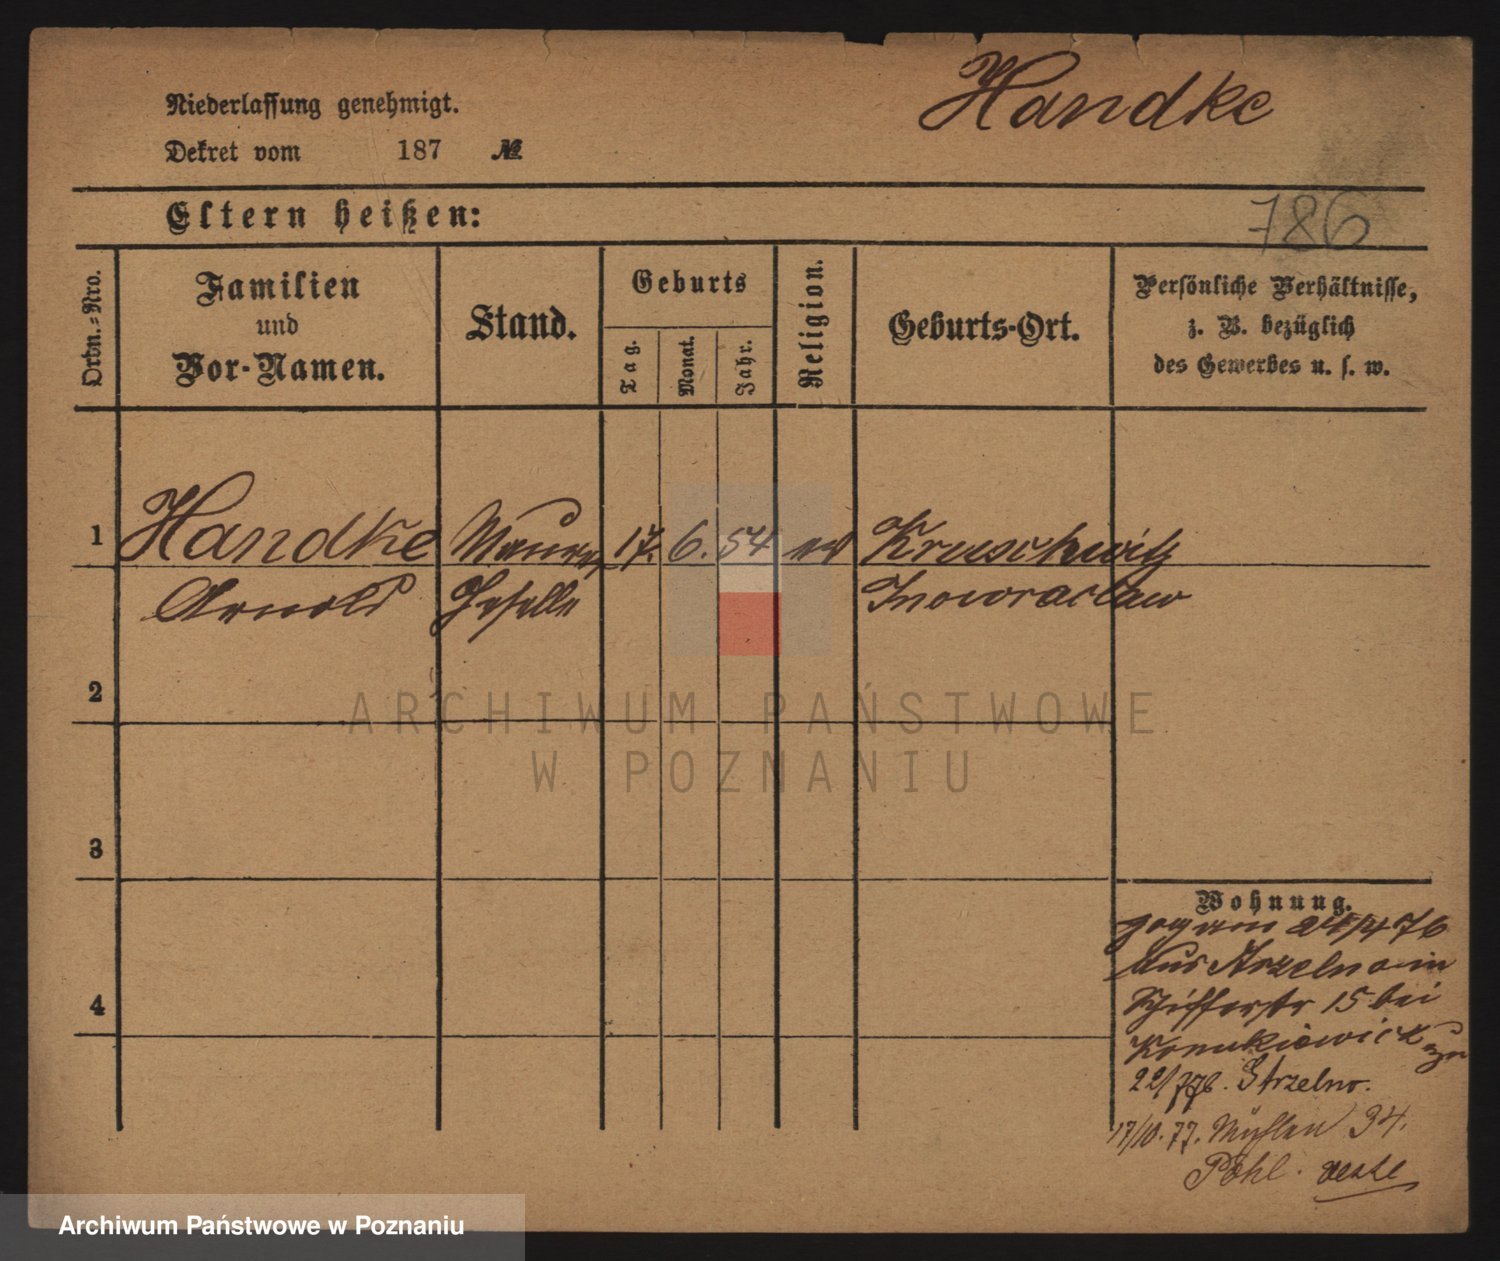 Handke
Niederlassung genehmigt.
Dekret vom 187 №
Eltern heißen:
786
Ordn.-Nro.
Familien
und
Vor-Namen.
Stand.
Geburts
Tag.
Monat.
Jahr.
Religion.
Geburts-Ort.
Persönliche Verhältnisse,
z. B. bezüglich
des Gewerbes u. s. w.
1
Handke Maurer 17. 6. 54 ev Kruschwitz
Arnold Geselle Inowraclaw
2
ARCHIWUM PAŃSTWOWE
W POZNANIU
3
Wohnung.
24/4 76
aus Strzelno in
Schifferstr 15 bei
4
22/7 76. Strzelno.
17/10. 77. Mühlen 34.
Pohl.
Archiwum Państwowe w Poznaniu